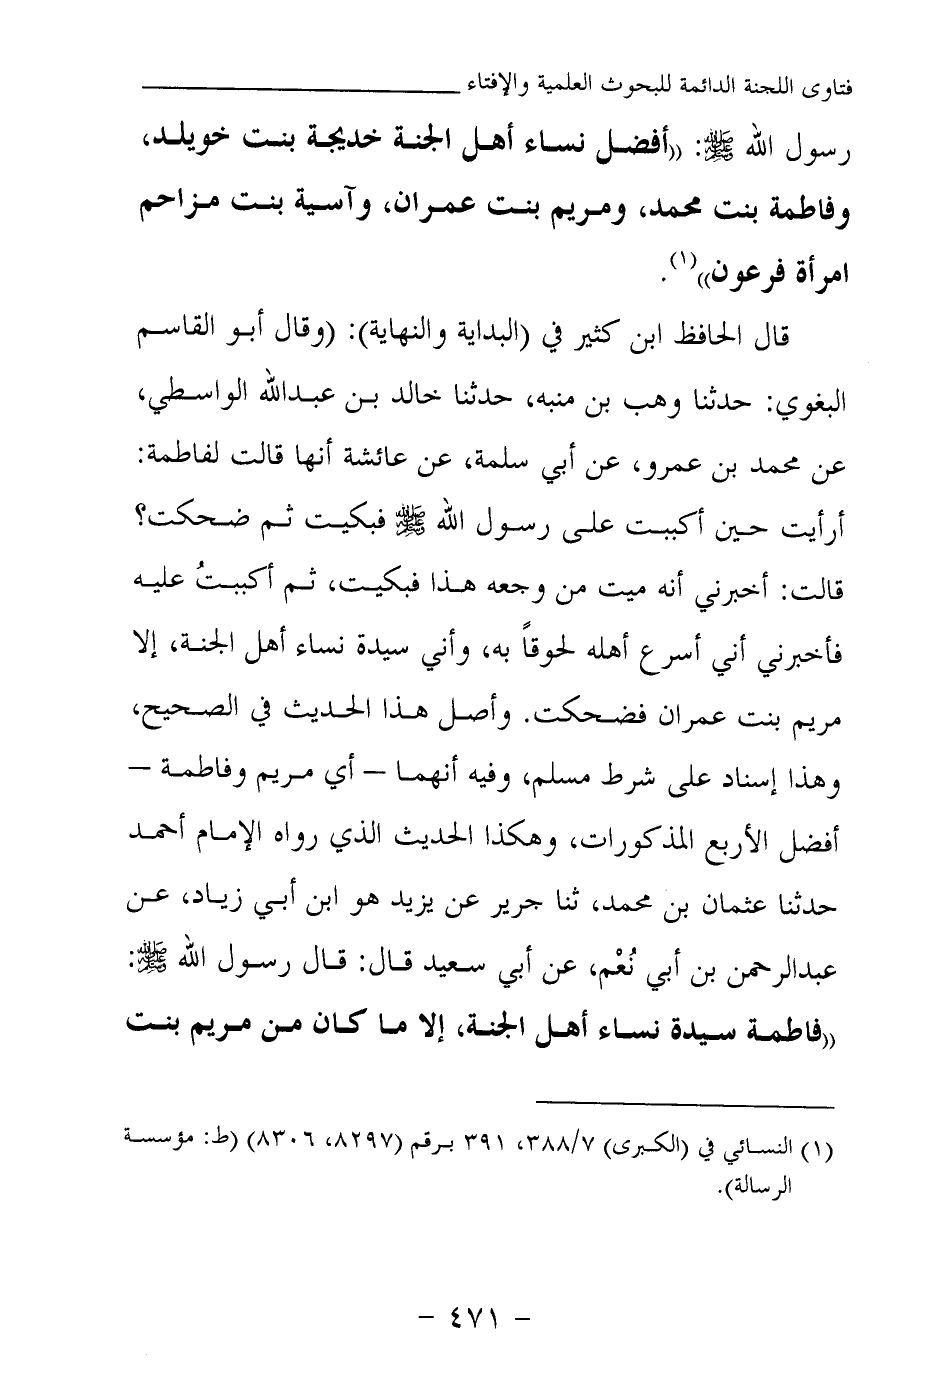 فتاوى اللجنة الدائمة للبحوث العلمية والإفتاء
رسول الله ﷺ: «أفضل نساء أهل الجنة خديجة بنت خويلد،
وفاطمة بنت محمد، ومريم بنت عمران، وآسية بنت مزاحم
امرأة فرعون»(١).
قال الحافظ ابن كثير في (البداية والنهاية): (وقال أبو القاسم
البغوي: حدثنا وهب بن منبه، حدثنا خالد بن عبدالله الواسطي،
عن محمد بن عمرو، عن أبي سلمة، عن عائشة أنها قالت لفاطمة:
أرأيت حين أكببت على رسول الله ﷺ فبكيت ثم ضحكت؟
قالت: أخبرني أنه ميت من وجعه هذا فبكيت، ثم أكببتُ عليه
فأخبرني أني أسرع أهله لحوقاً به، وأني سيدة نساء أهل الجنة، إلا
مريم بنت عمران فضحكت. وأصل هذا الحديث في الصحيح،
وهذا إسناد على شرط مسلم، وفيه أنهما – أي مريم وفاطمة –
أفضل الأربع المذكورات، وهكذا الحديث الذي رواه الإمام أحمد
حدثنا عثمان بن محمد، ثنا جرير عن يزيد هو ابن أبي زياد، عن
عبدالرحمن بن أبي نُعْم، عن أبي سعيد قال: قال رسول الله ﷺ:
«فاطمة سيدة نساء أهل الجنة، إلا ما كان من مريم بنت
(١) النسائي في (الكبرى) ٣٨٨/٧، ٣٩١ برقم (٨٢٩٧، ٨٣٠٦) (ط: مؤسسة
الرسالة).
– ٤٧١ –